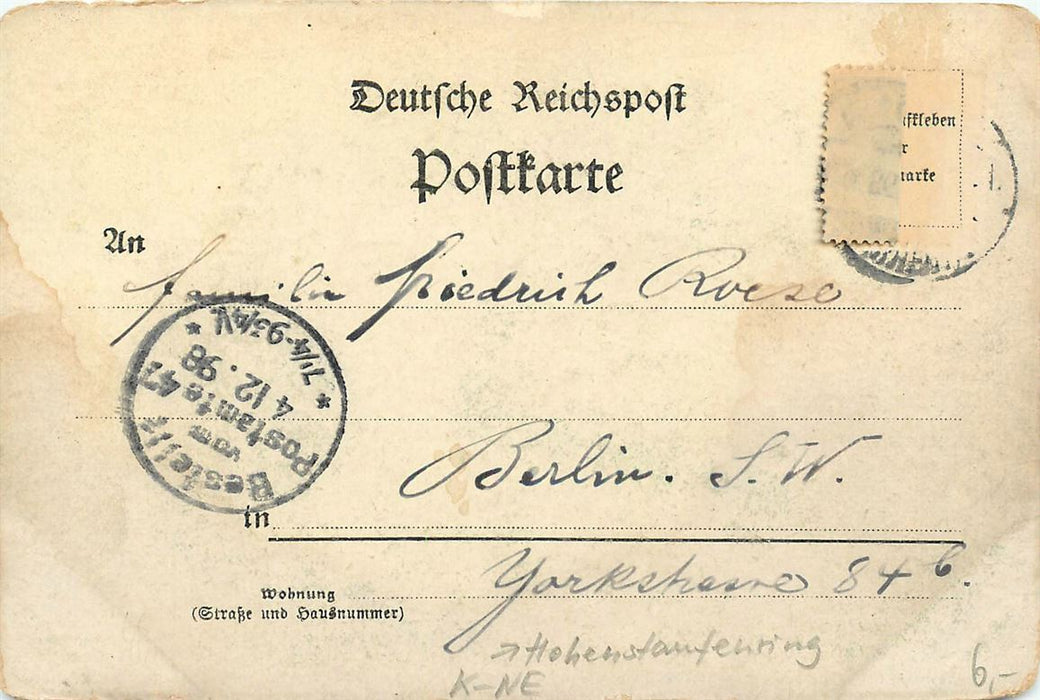 Deutsche Reichspost
Postkarte
ufkleben
r
marke
An
Familie Friedrich Roese
Bestellt
vom
Postamte 47
4 12.98
7¼-9¾N
Berlin. S. W.
in
Yorkstrasse 84 b.
Wohnung
(Straße und Hausnummer)
→Hohenstaufenring
K-NE
6,-